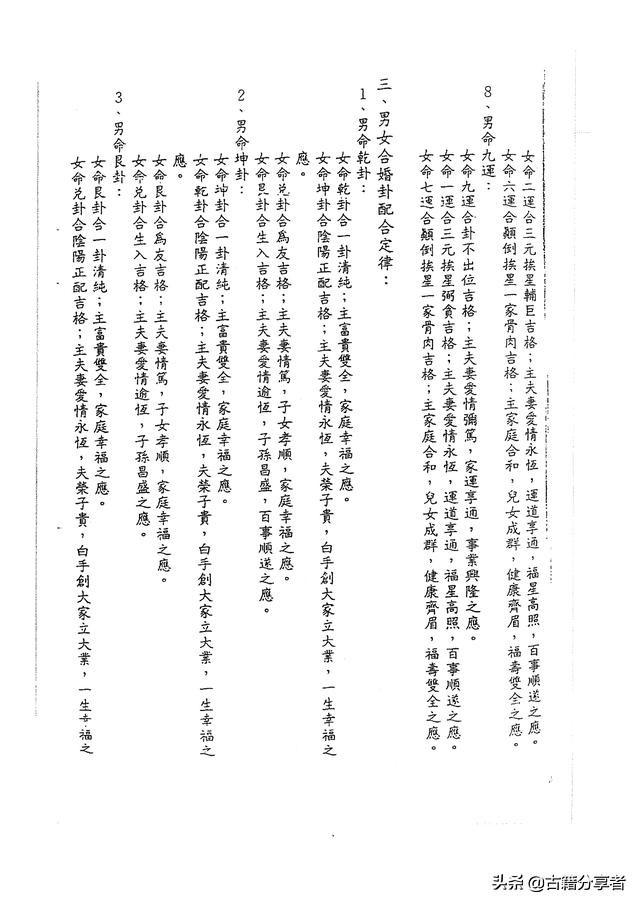 女命二運合三元挨星輔巨吉格；主夫妻愛情永恆，運道享通，福星高照，百事順遂之應。
女命六運合顛倒挨星一家骨肉吉格；主家庭合和，兒女成群，健康齊眉，福壽雙全之應。
8、男命九運：
女命九運合卦不出位吉格；主夫妻愛情彌篤，家運享通，事業興隆之應。
女命一運合三元挨星弼貪吉格；主夫妻愛情永恆，運道享通，福星高照，百事順遂之應。
女命七運合顛倒挨星一家骨肉吉格；主家庭合和，兒女成群，健康齊眉，福壽雙全之應。
三、男女合婚卦配合定律：
1、男命乾卦：
女命乾卦合一卦清純；主富貴雙全，家庭幸福之應。
女命坤卦合陰陽正配吉格；主夫妻愛情永恆，夫榮子貴，白手創大家立大業，一生幸福之
應。
女命兌卦合為友吉格；主夫妻情篤，子女孝順，家庭幸福之應。
女命艮卦合生入吉格；主夫妻愛情逾恆，子孫昌盛，百事順遂之應。
2、男命坤卦：
女命坤卦合一卦清純；主富貴雙全，家庭幸福之應。
女命乾卦合陰陽正配吉格；主夫妻愛情永恆，夫榮子貴，白手創大家立大業，一生幸福之
應。
女命艮卦合為友吉格；主夫妻情篤，子女孝順，家庭幸福之應。
女命兌卦合生入吉格；主夫妻愛情逾恆，子孫昌盛之應。
3、男命艮卦：
女命艮卦合一卦清純；主富貴雙全，家庭幸福之應。
女命兌卦合陰陽正配吉格；主夫妻愛情永恆，夫榮子貴，白手創大家立大業，一生幸福之
头条 @古籍分享者